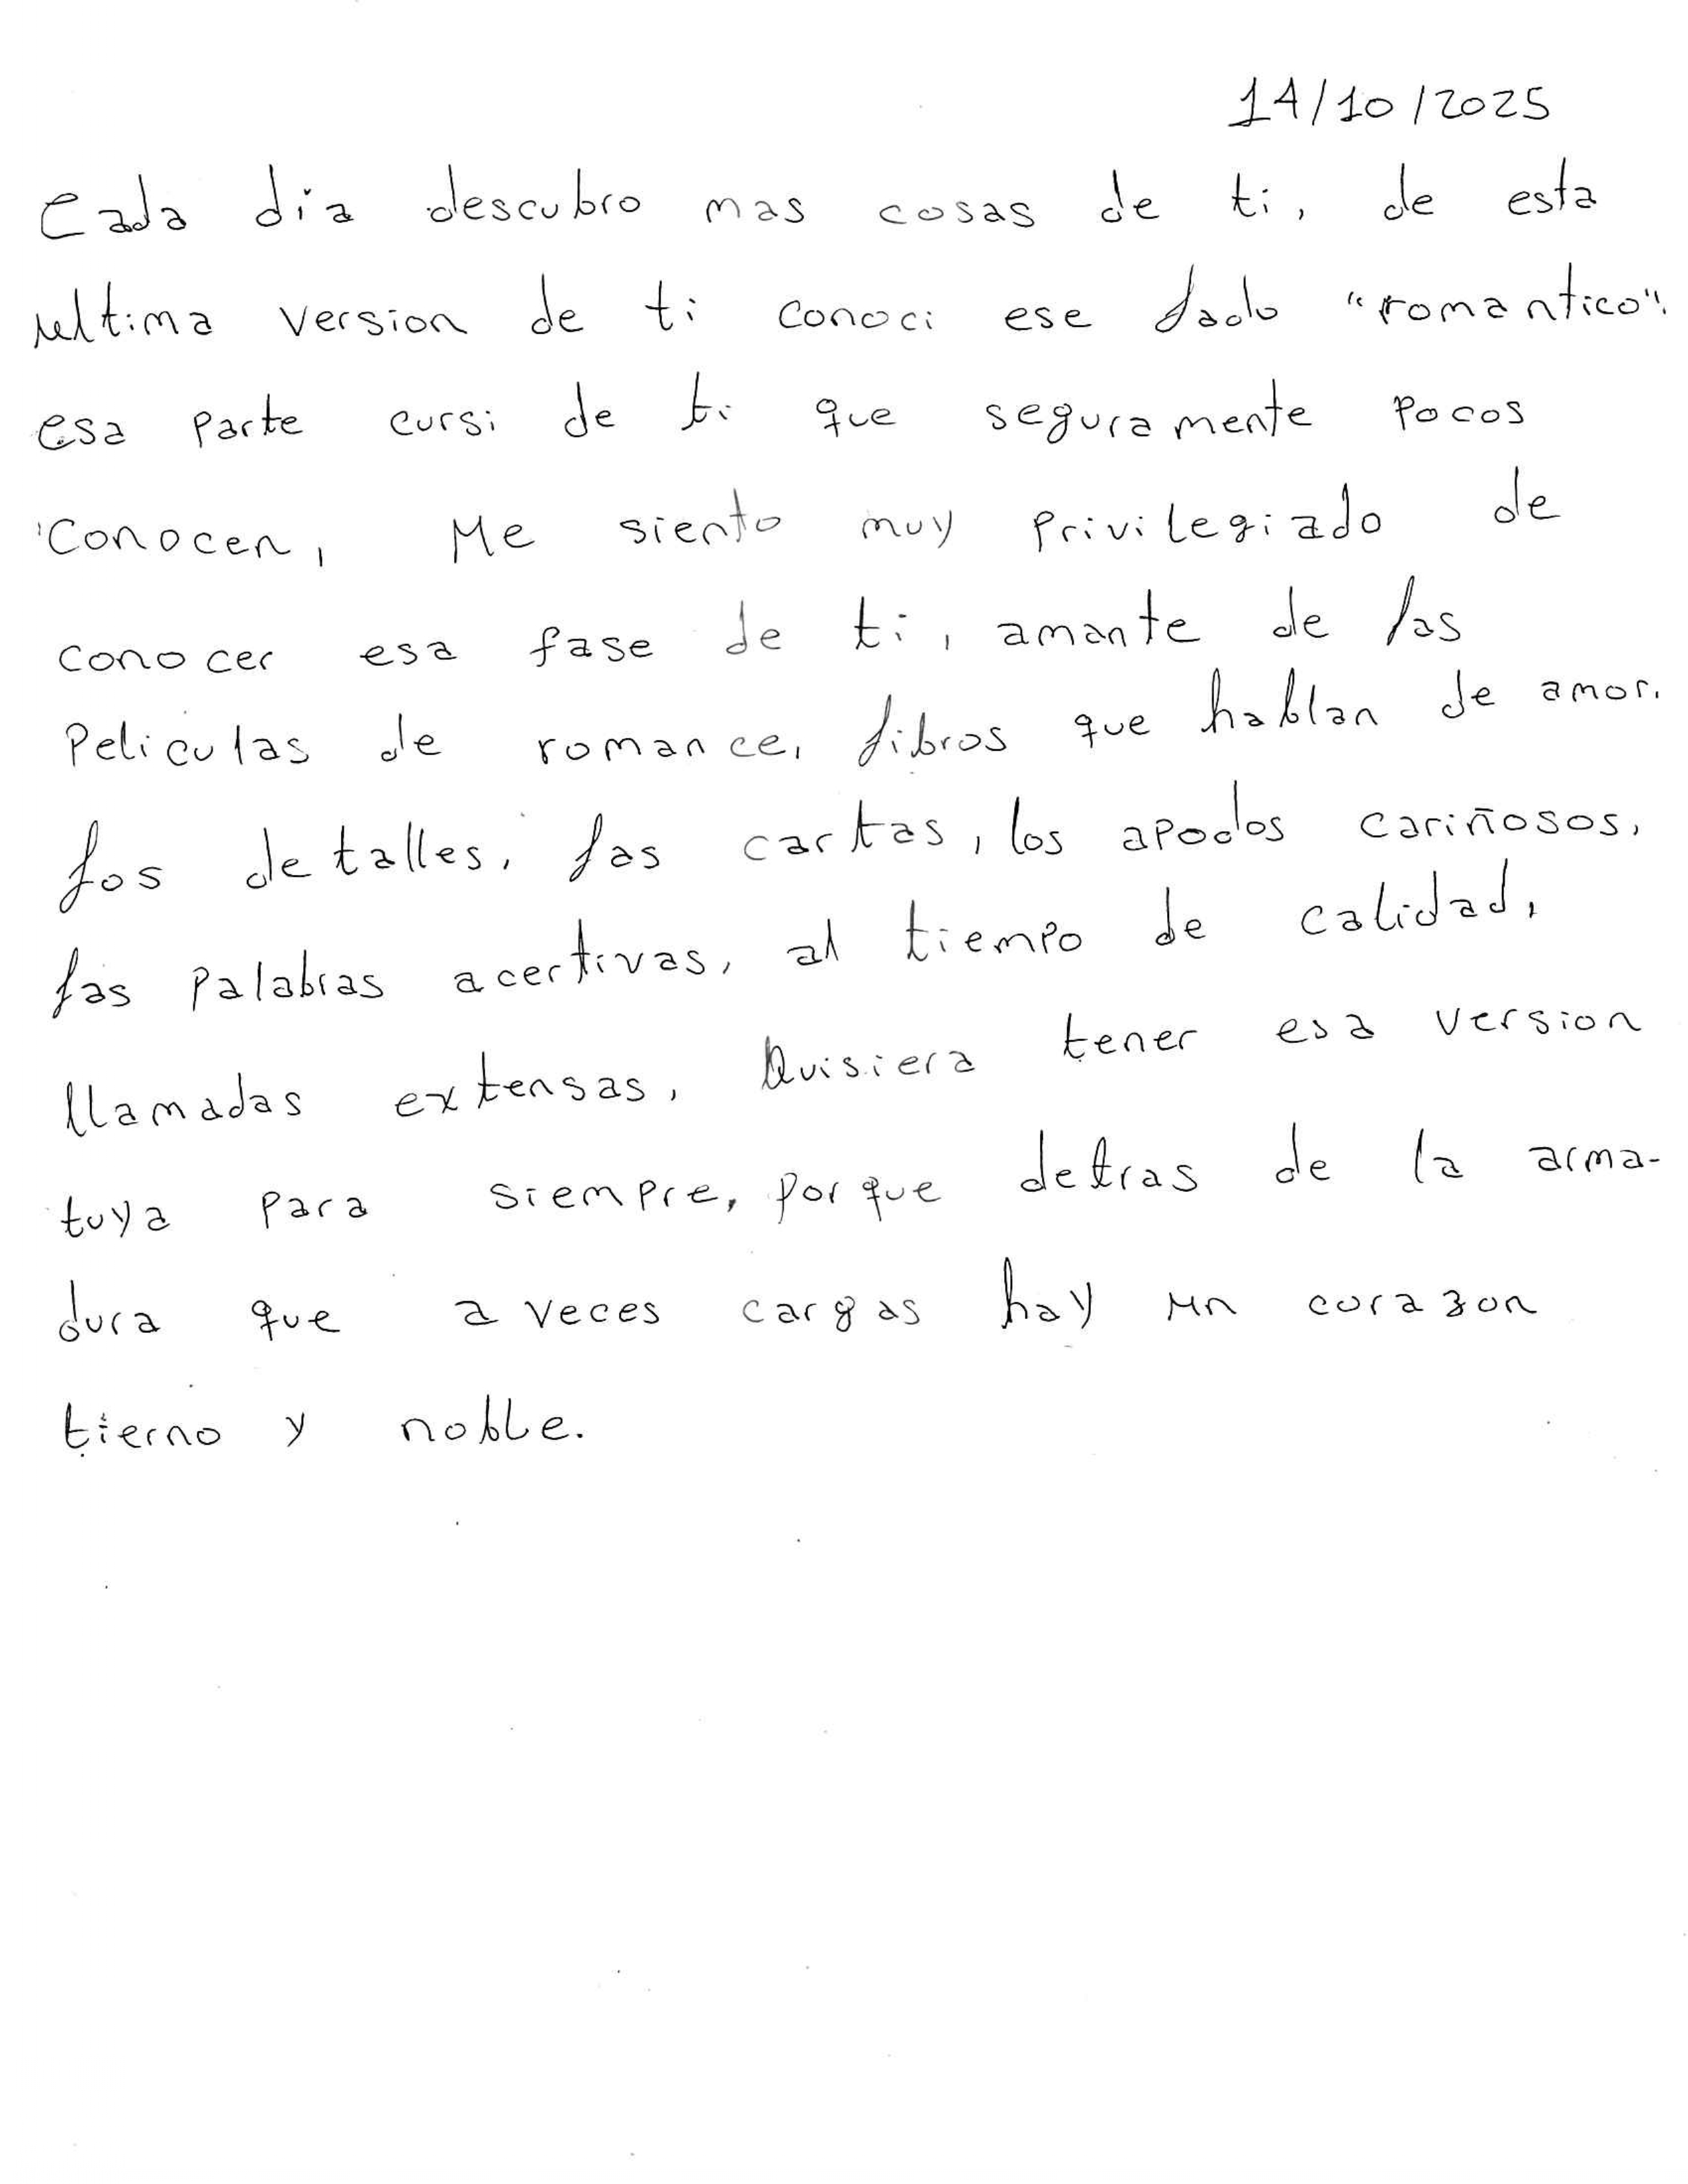 14/10/2025
Cada dia descubro mas cosas de ti, de esta
ultima version de ti conoci ese lado "romantico".
esa parte cursi de ti que seguramente pocos
conocen, Me siento muy privilegiado de
conocer esa fase de ti, amante de las
Peliculas de romance, libros que hablan de amor.
los detalles, las cartas, los apodos cariñosos,
las palabras acertivas, al tiempo de calidad,
llamadas extensas, Quisiera tener esa version
tuya para siempre, porque detras de la arma-
dura que a veces cargas hay un corazon
tierno y noble.